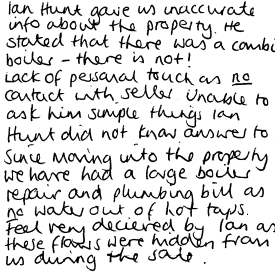 Ian Hunt gave us inaccurate
info about the property. He
stated that there was a combi
boiler - there is not!
Lack of personal touch as no
contact with seller unable to
ask him simple things Ian
Hunt did not know answer to
Since moving into the property
we have had a large boiler
repair and plumbing bill as
no water out of hot taps.
Feel very decieved by Ian as
these flaws were hidden from
us during the sale.